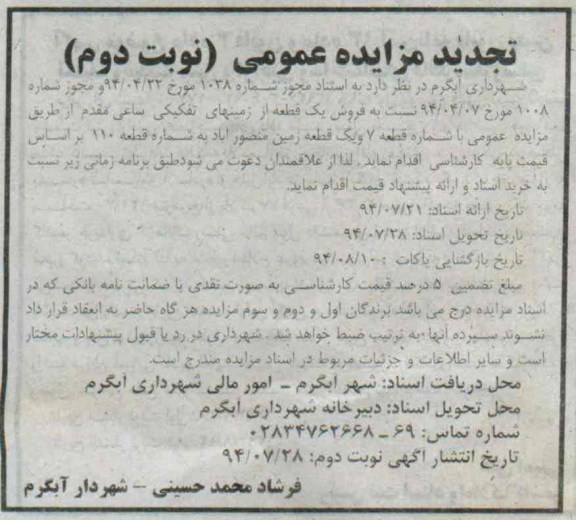 تجدید مزایده عمومی (نوبت دوم)
شهرداری آبگرم در نظر دارد به استناد مجوز شماره ۱۰۳۸ مورخ ۹۴/۰۴/۲۲ و مجوز شماره
۱۰۰۸ مورخ ۹۴/۰۴/۰۷ نسبت به فروش یک قطعه از زمینهای تفکیکی ساعی مقدم از طریق
مزایده عمومی با شماره قطعه ۷ ویک قطعه زمین منصور آباد به شماره قطعه ۱۱۰ بر اساس
قیمت پایه کارشناسی اقدام نماید. لذا از علاقمندان دعوت می شودطبق برنامه زمانی زیر نسبت
به خرید اسناد و ارائه پیشنهاد قیمت اقدام نماید.
تاریخ ارائه اسناد: ۹۴/۰۷/۲۱
تاریخ تحویل اسناد: ۹۴/۰۷/۲۸
تاریخ بازگشایی پاکات : ۹۴/۰۸/۱۰
مبلغ تضمین ۵ درصد قیمت کارشناسی به صورت نقدی یا ضمانت نامه بانکی که در
اسناد مزایده درج می باشد برندگان اول و دوم و سوم مزایده هر گاه حاضر به انعقاد قرار داد
نشوند سپرده آنها به ترتیب ضبط خواهد شد . شهرداری در رد یا قبول پیشنهادات مختار
است و سایر اطلاعات و جزئیات مربوط در اسناد مزایده مندرج است.
محل دریافت اسناد: شهر آبگرم ــ امور مالی شهرداری آبگرم
محل تحویل اسناد: دبیرخانه شهرداری آبگرم
شماره تماس: ۶۹ ــ ۰۲۸۳۴۷۶۲۶۶۸
تاریخ انتشار آگهی نوبت دوم: ۹۴/۰۷/۲۸
فرشاد محمد حسینی – شهردار آبگرم